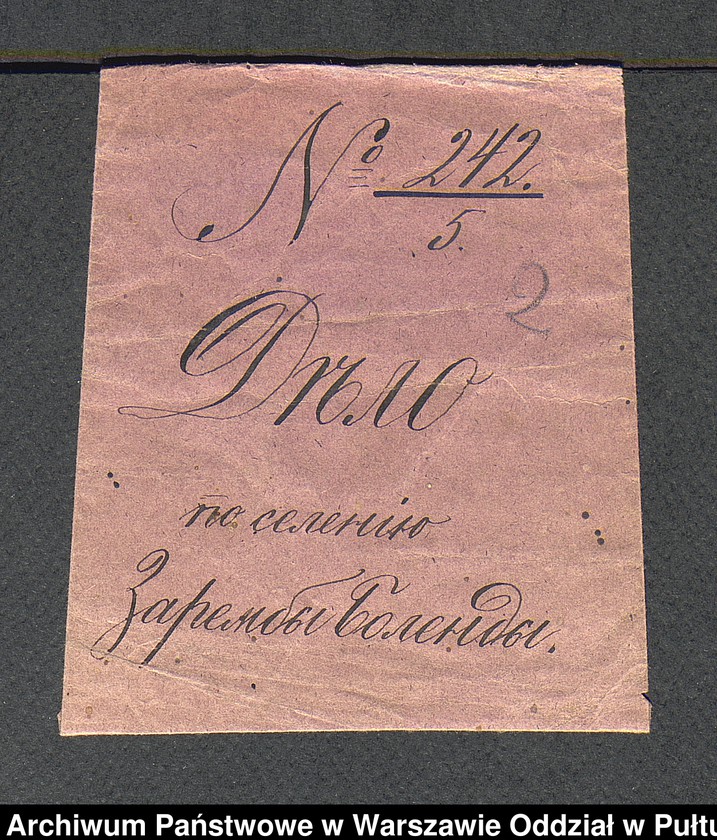 № 242.
5.
2
Дѣло
по селенію
Зарембы Боленды.
Archiwum Państwowe w Warszawie Oddział w Pułtu